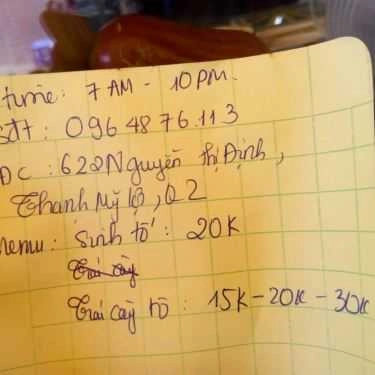 time: 7 AM - 10 PM.
sđt: 096 48 76.113
ĐC: 622 Nguyễn Thị Định,
Thạnh Mỹ Lợi, Q2
menu: Sinh tố: 20K
Trái cây
Trái cây tô: 15K - 20K - 30K